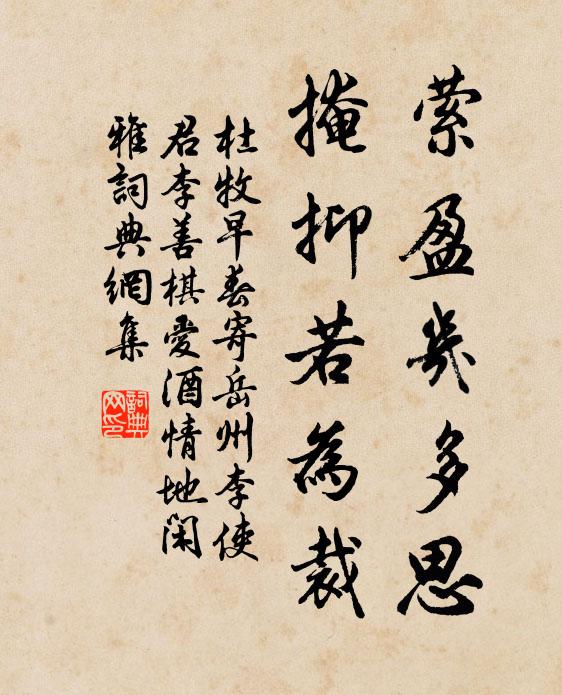 縈盈幾多思
掩抑若為裁
杜牧早春寄岳州李使
君李善棋愛酒情地閑
雅詞典網集
詞典
网印